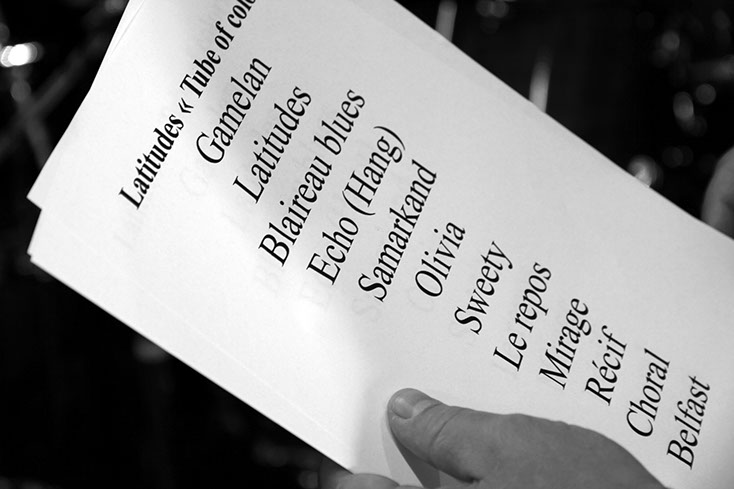 Latitudes « Tube of
Gamelan
Latitudes
Blaireau blues
Echo (Hang)
Samarkand
Olivia
Sweety
Le repos
Mirage
Récif
Choral
Belfast